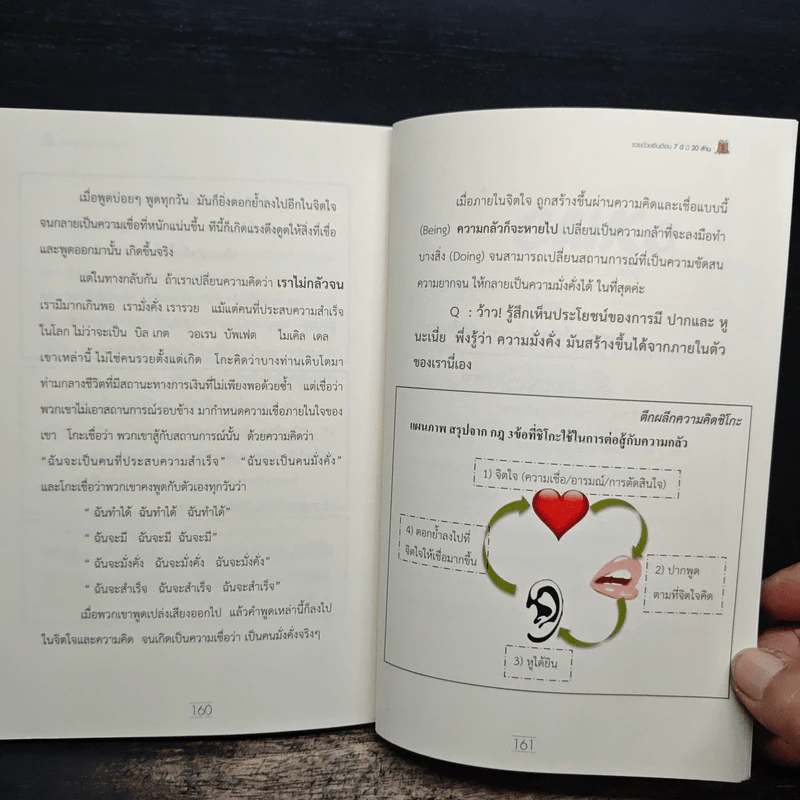 เมื่อพูดบ่อยๆ พูดทุกวัน มันก็ยิ่งตอกย้ำลงไปอีกในจิตใจ
จนกลายเป็นความเชื่อที่หนักแน่นขึ้น ทีนี้ก็เกิดแรงดึงดูดให้สิ่งที่เชื่อ
และพูดออกมานั้น เกิดขึ้นจริง
แต่ในทางกลับกัน ถ้าเราเปลี่ยนความคิดว่า เราไม่กลัวจน
เรามีมากเกินพอ เรามั่งคั่ง เรารวย แม้แต่คนที่ประสบความสำเร็จ
ในโลก ไม่ว่าจะเป็น บิล เกต วอเรน บัพเฟต ไมเคิล เดล
เขาเหล่านี้ ไม่ใช่คนรวยตั้งแต่เกิด โกะคิดว่าบางท่านเติบโตมา
ท่ามกลางชีวิตที่มีสถานะทางการเงินที่ไม่เพียงพอด้วยซ้ำ แต่เชื่อว่า
พวกเขาไม่เอาสถานการณ์รอบข้าง มากำหนดความเชื่อภายในใจของ
เขา โกะเชื่อว่า พวกเขาสู้กับสถานการณ์นั้น ด้วยความคิดว่า
“ฉันจะเป็นคนที่ประสบความสำเร็จ” “ฉันจะเป็นคนมั่งคั่ง”
และโกะเชื่อว่าพวกเขาคงพูดกับตัวเองทุกวันว่า
“ ฉันทำได้ ฉันทำได้ ฉันทำได้”
“ ฉันจะมี ฉันจะมี ฉันจะมี”
“ ฉันจะมั่งคั่ง ฉันจะมั่งคั่ง ฉันจะมั่งคั่ง”
“ ฉันจะสำเร็จ ฉันจะสำเร็จ ฉันจะสำเร็จ”
เมื่อพวกเขาพูดเปล่งเสียงออกไป แล้วคำพูดเหล่านี้ก็ลงไป
ในจิตใจและความคิด จนเกิดเป็นความเชื่อว่า เป็นคนมั่งคั่งจริงๆ
160
รวยด้วยเงินเดือน 7 ปี มี 20 ล้าน
เมื่อภายในจิตใจ ถูกสร้างขึ้นผ่านความคิดและเชื่อแบบนี้
(Being) ความกลัวก็จะหายไป เปลี่ยนเป็นความกล้าที่จะลงมือทำ
บางสิ่ง (Doing) จนสามารถเปลี่ยนสถานการณ์ที่เป็นความขัดสน
ความยากจน ให้กลายเป็นความมั่งคั่งได้ ในที่สุดค่ะ
Q : ว้าว! รู้สึกเห็นประโยชน์ของการมี ปากและ หู
นะเนี่ย พึ่งรู้ว่า ความมั่งคั่ง มันสร้างขึ้นได้จากภายในตัว
ของเรานี่เอง
ตึกผลึกความคิดชิโกะ
แผนภาพ สรุปจาก กฎ 3ข้อที่ชิโกะใช้ในการต่อสู้กับความกลัว
1) จิตใจ (ความเชื่อ/อารมณ์/การตัดสินใจ)
4) ตอกย้ำลงไปที่
จิตใจให้เชื่อมากขึ้น
2) ปากพูด
ตามที่จิตใจคิด
3) หูได้ยิน
161